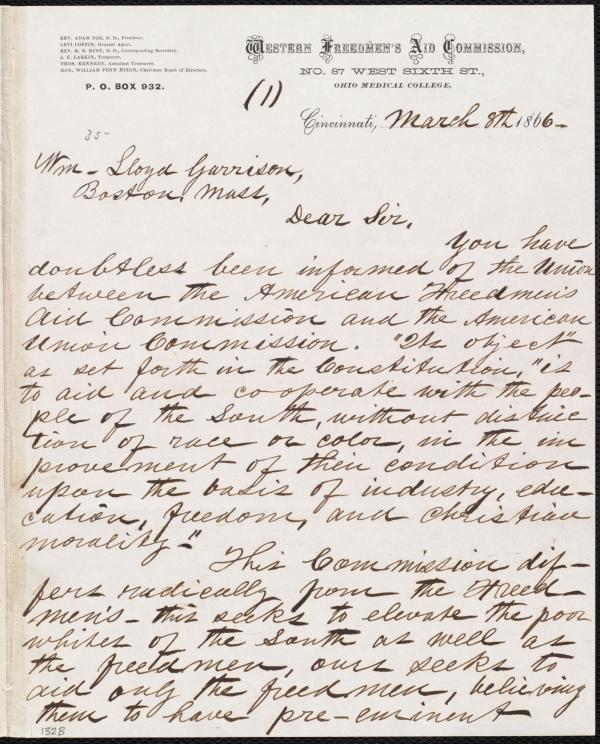 REV. ADAM POE, D. D., President.
LEVI COFFIN, General Agent.
REV. R. S. RUST, D. D., Corresponding Secretary.
J. F. LARKIN, Treasurer.
THOS. KENNEDY, Assistant Treasurer.
HON. WILLIAM PENN NIXON, Chairman Board of Directors.
P. O. BOX 932.
WESTERN FREEDMEN'S AID COMMISSION,
NO. 87 WEST SIXTH ST.,
OHIO MEDICAL COLLEGE.
(1)
Cincinnati, March 8th 1866-
35-
Wm- Lloyd Garrison,
Boston, Mass,
Dear Sir,
You have
doubtless been informed of the Union
between the American Freedmen's
Aid Commission and the American
Union Commission. "Its object"
as set forth in the Constitution, "is
to aid and co-operate with the peo-
ple of the South, without distinc
tion of race or color, in the im
provement of their condition
upon the basis of industry, edu-
cation, freedom, and christian
morality-"
This Commission dif-
fers radically from the Freed-
men's- this seeks to elevate the poor
whites of the South as well as
the freedmen, ours seeks to
aid only the freedmen, believing
them to have pre-eminent
132B